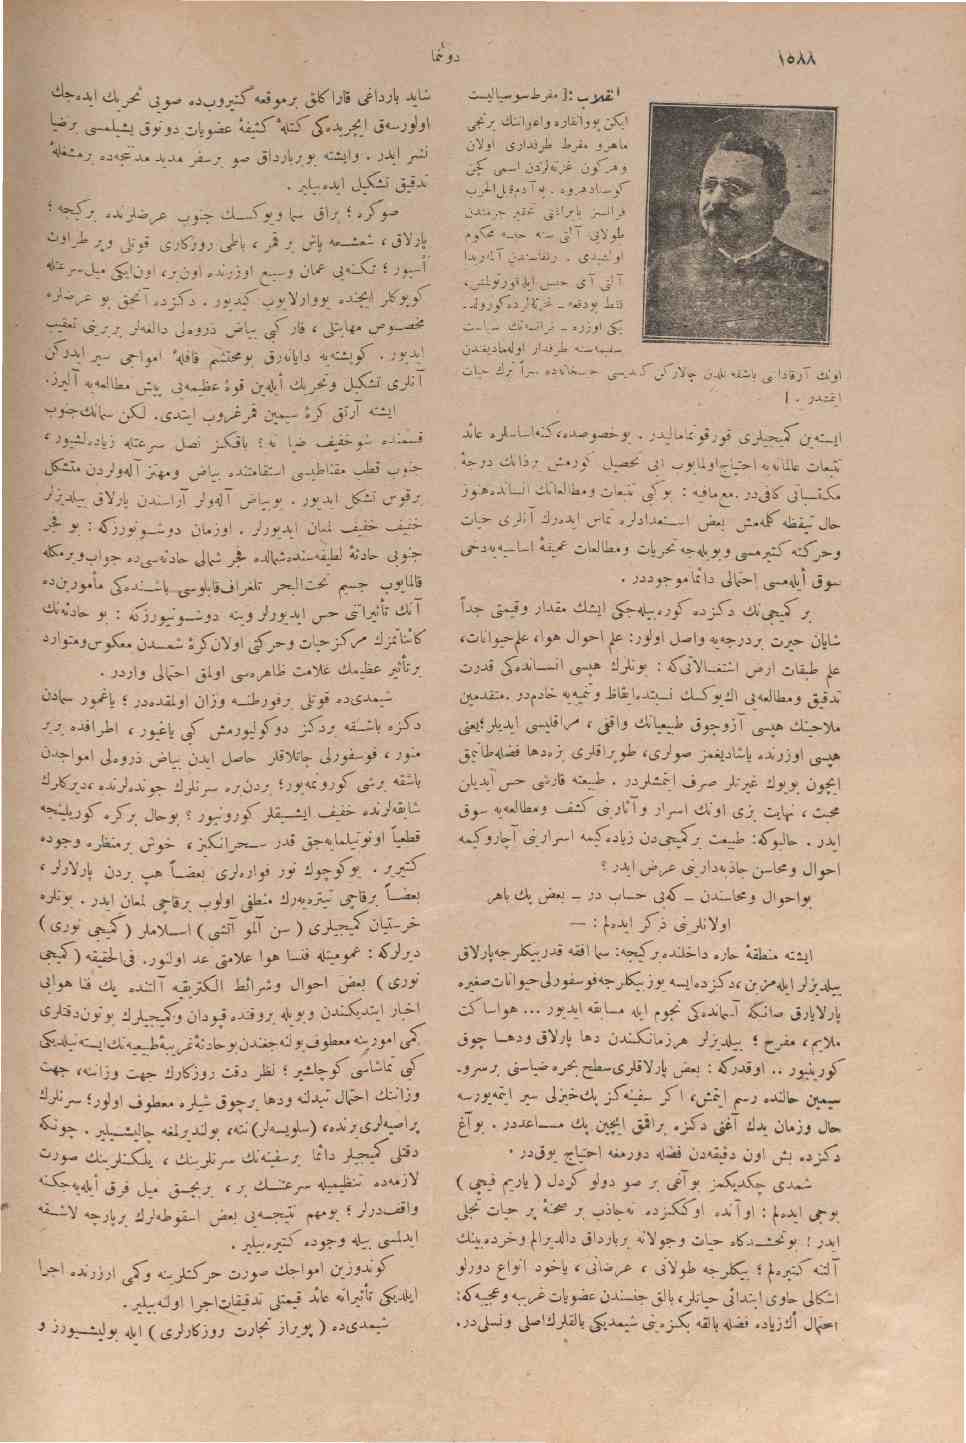 ١٥٨٨
دوننما
انقلاب : [ مفرط سوسياليست
ايكن بووانقاره واعواننك برنجى
ماهر و مفرط طرفدارى اولان
وهركون غزته‌لردن اسمى كچن
كوستاوهروه . بو آدم قبل الحرب
فرانسز بايراغنى تحقير جرمندن
طولايى آلتى سنه حبسه محكوم
اولمشيدى .
آلتى آى حبس ايله قورتولمش،
فقط بودفعه ـ غزته‌لرده كورولديـ
يكى اوزره ـ فرانسه‌نك سياست
سقيمه‌سنه طرفدار اوله‌ماديغندن
اونك آرقاداشى باشقه يلدن چالاركن كنديسى حبسخانه‌ده سراً ترك حيات
ايتمشدر . ]
ايسته‌ين كميجيلرى قورقوتمامايدر . بوخصوصده، كنه اساسلره عائد
تتبعات عالمانه‌يه احتياج اولمايوب ايى تحصيل كورمش برذاتك درجۀ
مكتسباتى كافى‌در . مع مافيه : بوكبى تتبعات ومطالعاتك انسانده هنوز
حال تيقظه كلمه‌مش بعض استعدادلره تماس ايده‌رك آنلرى حيات
وحركته كتيرمسى وبويله‌جه تحريات ومطالعات عميقۀ اساسيه‌يه دخى
سوق أيله‌مسى احتمالى دائما موجوددر .
بر كميجى‌نك دكزده كوره‌بيله‌جكى ايشك مقدار وقيمتى جداً
شايان حيرت بردرجه‌يه واصل اولور: علم احوال هوا، علم حيوانات،
علم طبقات ارض اشتغالاتى كه : بونلرك هپسى انسانده‌كى قدرت
تدقيق ومطالعه‌يى اك يوكسك نسبتده ايقاظ وتنميه‌يه خادم‌در . متقدمين
ملاحينك هپسى آزوچوق طبيعياتك واقفى ، مراقليسى ايديلر؛ يعنى
هپسى اوزرنده ياشاديغمز صولرى، طوپراقلرى بزه دها فضله طانيتمق
ايچون بويوك غيرتلر صرف ايتمشلردر . طبيعته قارشى حس آيديلن
محبت ، نهايت بزى اونك اسرار وآثارينى كشف ومطالعه‌يه سوق
ايدر . حالبوكه: طبيعت بركميجى‌دن زياده كيمه اسرارينى آچار وكيمه
احوال ومحاسن جاذبه‌دارينى عرض ايدر ؟
بواحوال ومحاسندن ـ كه‌بى حساب در ـ بعض پك باهر
اولانلرينى ذكر ايده‌لم : —
ايشته منطقۀ حاره داخلنده بركيجه: سما افقه قدر بيكلرجه پارلاق
ييلديزلر ايله مزين ، دكزده ايسه يوز بيكلرجه فوسفورلى حيوانات صغيره
پارلايارق صانكه آسمانده‌كى نجوم ايله مسابقه ايديور ... هواساكت
ملايم، مفرح ؛ ييلديزلر هرزمانكندن دها پارلاق ودهـا چوق
كورينيور .. اوقدركه : بعض پارلاقلرى سطح بحره ضياسنى برسروـ
سيمين حالنده رسم ايتمش، اكر سفينه‌كز پك خيزلى سير ايتمه‌يورسه
حال وزمان يدك آغنى دكزه براقمق ايچين پك مسـاعددر . بوآغ
دكزده بش اون دقيقه‌دن فضله دورمغه احتياج يوق‌در .
شمدى چكديكمز بوآغى بر صو دولو كردل ( ياريم فيچى )
بوجى ايده‌لم : او آنده اوكنكزده نه‌جاذب بر صحنۀ پر حيات تجلى
ايدر ! بونخشـدكاه حيات وجولانه برباردق دالديرالم وخرده‌بينك
آلتنه كتيره‌لم ؛ بيكلرجه طولانى ، عرضانى ، ياخود انواع دورلو
اشكالى حاوى ابتدائى حياتلر، بالق جنسندن عضويات غريبه وعجيبه كه:
احتمال أك زياده فضله بالقه بكزه‌ينى شيمديكى بالقلرك اصلى ونسلى‌در.
شايد بارداغى قارا كلق برموقعه كتيروب‌ده صويى تحريك ايده‌جك
اولورسه‌ق ايچريده‌كى كتلۀ كثيفۀ عضويات دونوق يشيلمسى برضيا
نشر ايدر . وايشته بوبربارداق صو برسفر مديد مدتنجه‌ده برمشغلۀ
تدقيق تشكيل ايده‌بيلير .
صوكره ؛ براق سما ويوكسـك جنوب عرضلرنده بركيجه ؛
پارلاق ، شعشـعه پاش بر قمر ، باطى روزكارى قوتلى وپر طراوت
أسيور ؛ تكنه‌يى عمان وسيع اوزرنده اون‌بر، اون‌ايكى ميل سرعتله
كوپوكلر ايچنده يووارلايوب كيديور . دكزده آنجق بو عرضلره
مخصـوص مهابتلى ، قار كبى بياض ذروه‌لى دالغه‌لر بربرينى تعقيب
ايديور . كوپشته‌يه دايانه‌رق بومحتشم قافلۀ امواجى سير ايدركن
آنلرى تشكيل وتحريك أيله‌ين قوۀ عظيمه‌يى پيش مطالعه‌يه آليرز.
ايشته آرتق كرۀ سيمين قمر غروب ايتدى. لكن سمانك جنوب
قسمنده شو خفيف ضيا نه ؟ باقكز نصل سرعتله زياده‌لشيور ،
جنوب قطب مقناطيسى استقامتنده بياض ومهتز آله‌ولردن متشكل
برقوس تشكل ايديور . بوبياض آله‌ولر آراسندن پارلاق ييلديزلر
خفيف خفيف لمعان ايديورلر . اوزمان دوشـونورزكه : بو فجر
جنوبى حادثۀ لطيفه‌سنده شمالده فجر شمالى حادثه‌سى‌ده جواب ويرمكله
قالمايوب جسيم تحت‌البحر تلغراف قابلوسى باشـنده‌كى مأمورين‌ده
آنك تأثيراتنى حس ايديورلر وينه دوشـونيورزكه : بو حادثه‌نك
كائناتمزك مركز حيات وحركتى اولان كرۀ شمسدن معكوس ومتوارد
برتأثير عظيمك علامت ظاهره‌سى اولمق احتمالى واردر .
شيمدى‌ده قوتلى برفورطنـه وزان اولمقده‌در ؛ ياغمور سمادن
دكزه باشـقه بردكز دوكوليورمش كبى ياغيور ، اطرافده بربر
منور ، فوسفورلى چاتلاقلر حاصل ايدن بياض ذروه‌لى امواجدن
باشقه برشى كورونمه‌يور؛ بردن‌بره سرنلرك جونده‌لرنده ، ديركلرك
شابقه‌لرنده خفيف ايشـيقلر كورونيور ؟ بوحال بركره كوريلنجه
قطعياً اونوتيلمايه‌جق قدر سـحرانكيز ، خوش برمنظره وجوده
كتيرير . بوكوچوك نور فواره‌لرى بعضـاً هپ بردن پارلارلر ،
بعضـاً برقاچى تيتره‌يه‌رك منطفى اولوب برقاچى لمعان ايدر . بونلره
خرستيان كميجيلرى ( سن آلمو آتشى ) اسـلاملر ( كميجى نورى )
ديرلركه : عموميتله فنا هوا علامتى عد اولنور. فى‌الحقيقه ( كميجى
نورى ) بعض احوال وشرائط الكتريقيه آلتنده پك فنا هوايى
اخبار ايتديكندن وبويله بروقتده قپودان وكميجيلرك بوتون دقتلرى
كمى امورينه معطوف بولنه‌جغندن بوحادثۀ غريبۀ طبيعيه‌نك ايسته‌نيلديكى
كبى تماشاسى كوچلشير ؛ نظر دقت روزكارك جهت وزانه، جهت
وزانك احتمال تبدلنه ودها برچوق شيلره معطوف اولور؛ سرنلرك
پراصيه‌لرى برنده، (سلويسه‌لر) نته، بولنديرلمغه چاليشـيلير . چونكه
دقتلى كميجيلر دائما برسفينه‌نك سرنلرينك ، يلكنلرينك صورت
لازمه‌ده تنظيميله سرعتـنـك بر ، بربچـق ميل فرق أيله‌يه‌جكنه
واقفدرلر ؛ بومهم نتيجه‌يى بعض اسقوطه‌لرك برپارچه لاشـقه
ايدلمسى بيله وجوده كتيره‌بيلير .
كوندوزين امواجك صورت حركتلرينه وكمى ارزرنده اجرا
ايلديكى تأثيراته عائد قيمتلى تدقيقات اجرا اولنه‌بيلير .
شيمدى‌ده ( پويراز تجارت روزكارلرى ) ايله يوليشـيورز و